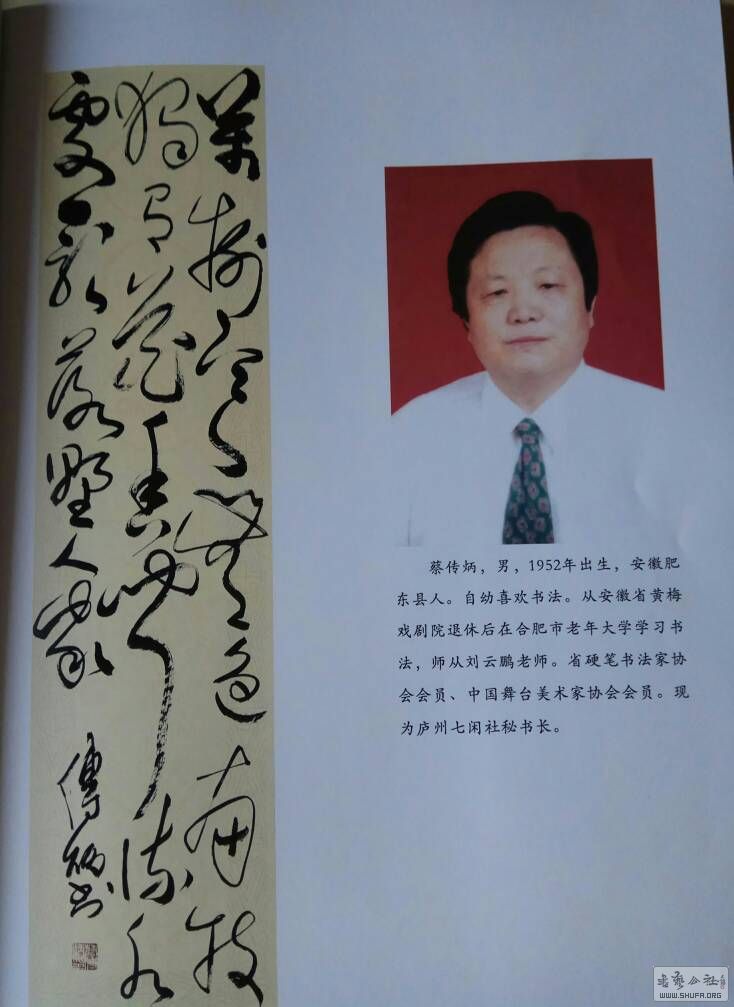 萬樹寒無色南枝
獨有花香聞流水
處影落野人家
傳炳书
蔡传炳，男，1952年出生，安徽肥
东县人。自幼喜欢书法。从安徽省黄梅
戏剧院退休后在合肥市老年大学学习书
法，师从刘云鹏老师。省硬笔书法家协
会会员、中国舞台美术家协会会员。现
为庐州七闲社秘书长。
书艺公社
WWW.SHUFA.ORG